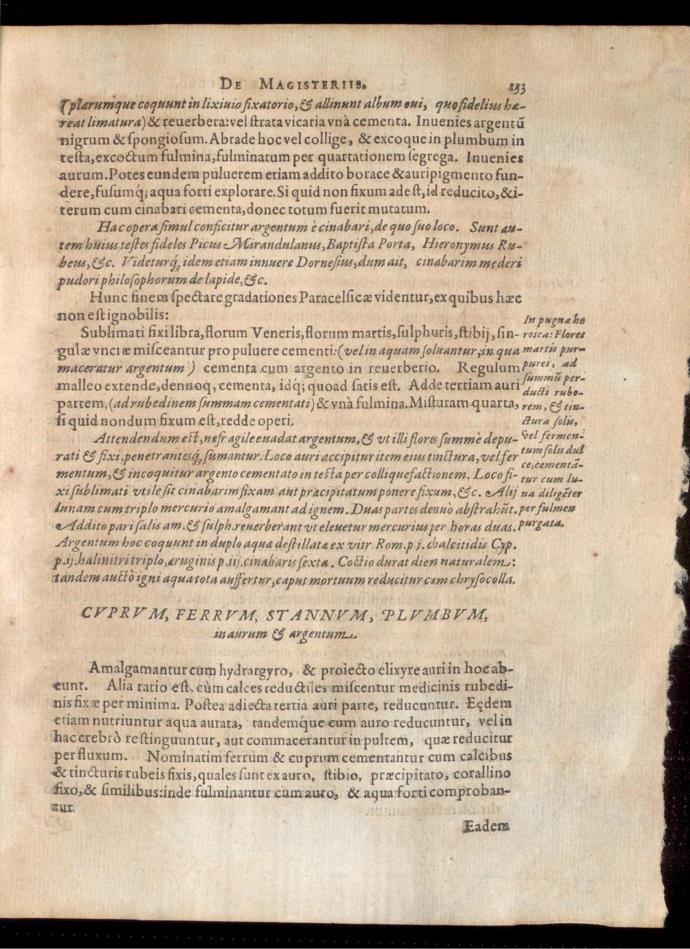 DE MAGISTERIIS. 193
(plærumque coquunt in lixiuio fixatorio, & allinunt album oui, quo fidelius hæ-
reat limatura) & reuerbera: vel strata vicaria vnà cementa. Inuenies argentũ
nigrum & spongiosum. Abrade hoc vel collige, & excoque in plumbum in
testa, excoctum fulmina, fulminatum per quartationem segrega. Inuenies
aurum. Potes eundem puluerem etiam addito borace & auripigmento fun-
dere, fusumq́; aqua forti explorare. Si quid non fixum adest, id reducito, & i-
terum cum cinabari cementa, donec totum fuerit mutatum.
Hac opera simul conficitur argentum è cinabari, de quo suo loco. Sunt au-
tem huius testes fideles Picus Mirandulanus, Baptista Porta, Hieronymus Ru-
beus, &c. Videturq́, idem etiam innuere Dornesius, dum ait, cinabarim mederi
pudori philosophorum de lapide, &c.
Hunc finem spectare gradationes Paracelsicæ videntur, ex quibus hæc
non est ignobilis:
Sublimati fixi libra, florum Veneris, florum martis, sulphuris, stibij, sin-
gulæ vnciæ misceantur pro puluere cementi: (vel in aquam soluantur, in qua
maceratur argentum) cementa cum argento in reuerberio. Regulum
malleo extende, denuoq, cementa, idq́; quoad satis est. Adde tertiam auri
partem, (ad rubedinem summam cementati) & vnà fulmina. Misturam quarta,
si quid nondum fixum est, redde operi.
Attendendum est, ne fragile euadat argentum, & vt illi flores summè depu-
rati & fixi, penetrantesq́, sumantur. Loco auri accipitur item eius tinctura, vel fer
mentum, & incoquitur argento cementato in testa per colliquefactionem. Loco fi-
xi sublimati vtile sit cinabarim fixam aut præcipitatum ponere fixum, &c. Alij
lunam cum triplo mercurio amalgamant ad ignem. Duas partes denuò abstrahũt.
Addito pari salis am. & sulph. reuerberant vt eleuetur mercurius per horas duas.
Argentum hoc coquunt in duplo aquæ destillatæ ex vitr. Rom. p. j. chalcitidis Cyp.
p. ij. halinitri triplo, æruginis p. iij. cinabaris sexta. Coctio durat dien naturalem:
tandem auctò igni aqua tota auffertur, caput mortuum reducitur cum chrysocolla.
In pugna he
roica: Flores
martis pur-
purei, ad
summũ per-
ducti rubo-
rem, & tin-
ctura solis,
vel fermen-
tum solis dul
ce, cementã-
tur cum lu-
na diligẽter
per fulmen
purgata.
CVPRVM, FERRVM, STANNVM, PLVMBVM,
in aurum & argentum.
Amalgamantur cum hydrargyro, & proiecto elixyre auri in hoc ab-
eunt. Alia ratio est, cùm calces reductiles miscentur medicinis rubedi-
nis fixæ per minima. Postea adiecta tertia auri parte, reducuntur. Eędem
etiam nutriuntur aqua aurata, tandemque cum auro reducuntur, vel in
hac crebrò restinguuntur, aut commacerantur in pultem, quæ reducitur
per fluxum. Nominatim ferrum & cuprum cementantur cum calcibus
& tincturis rubeis fixis, quales sunt ex auro, stibio, præcipitato, corallino
fixo, & similibus: inde fulminantur cum auro, & aqua forti comproban-
tur.
Eadem